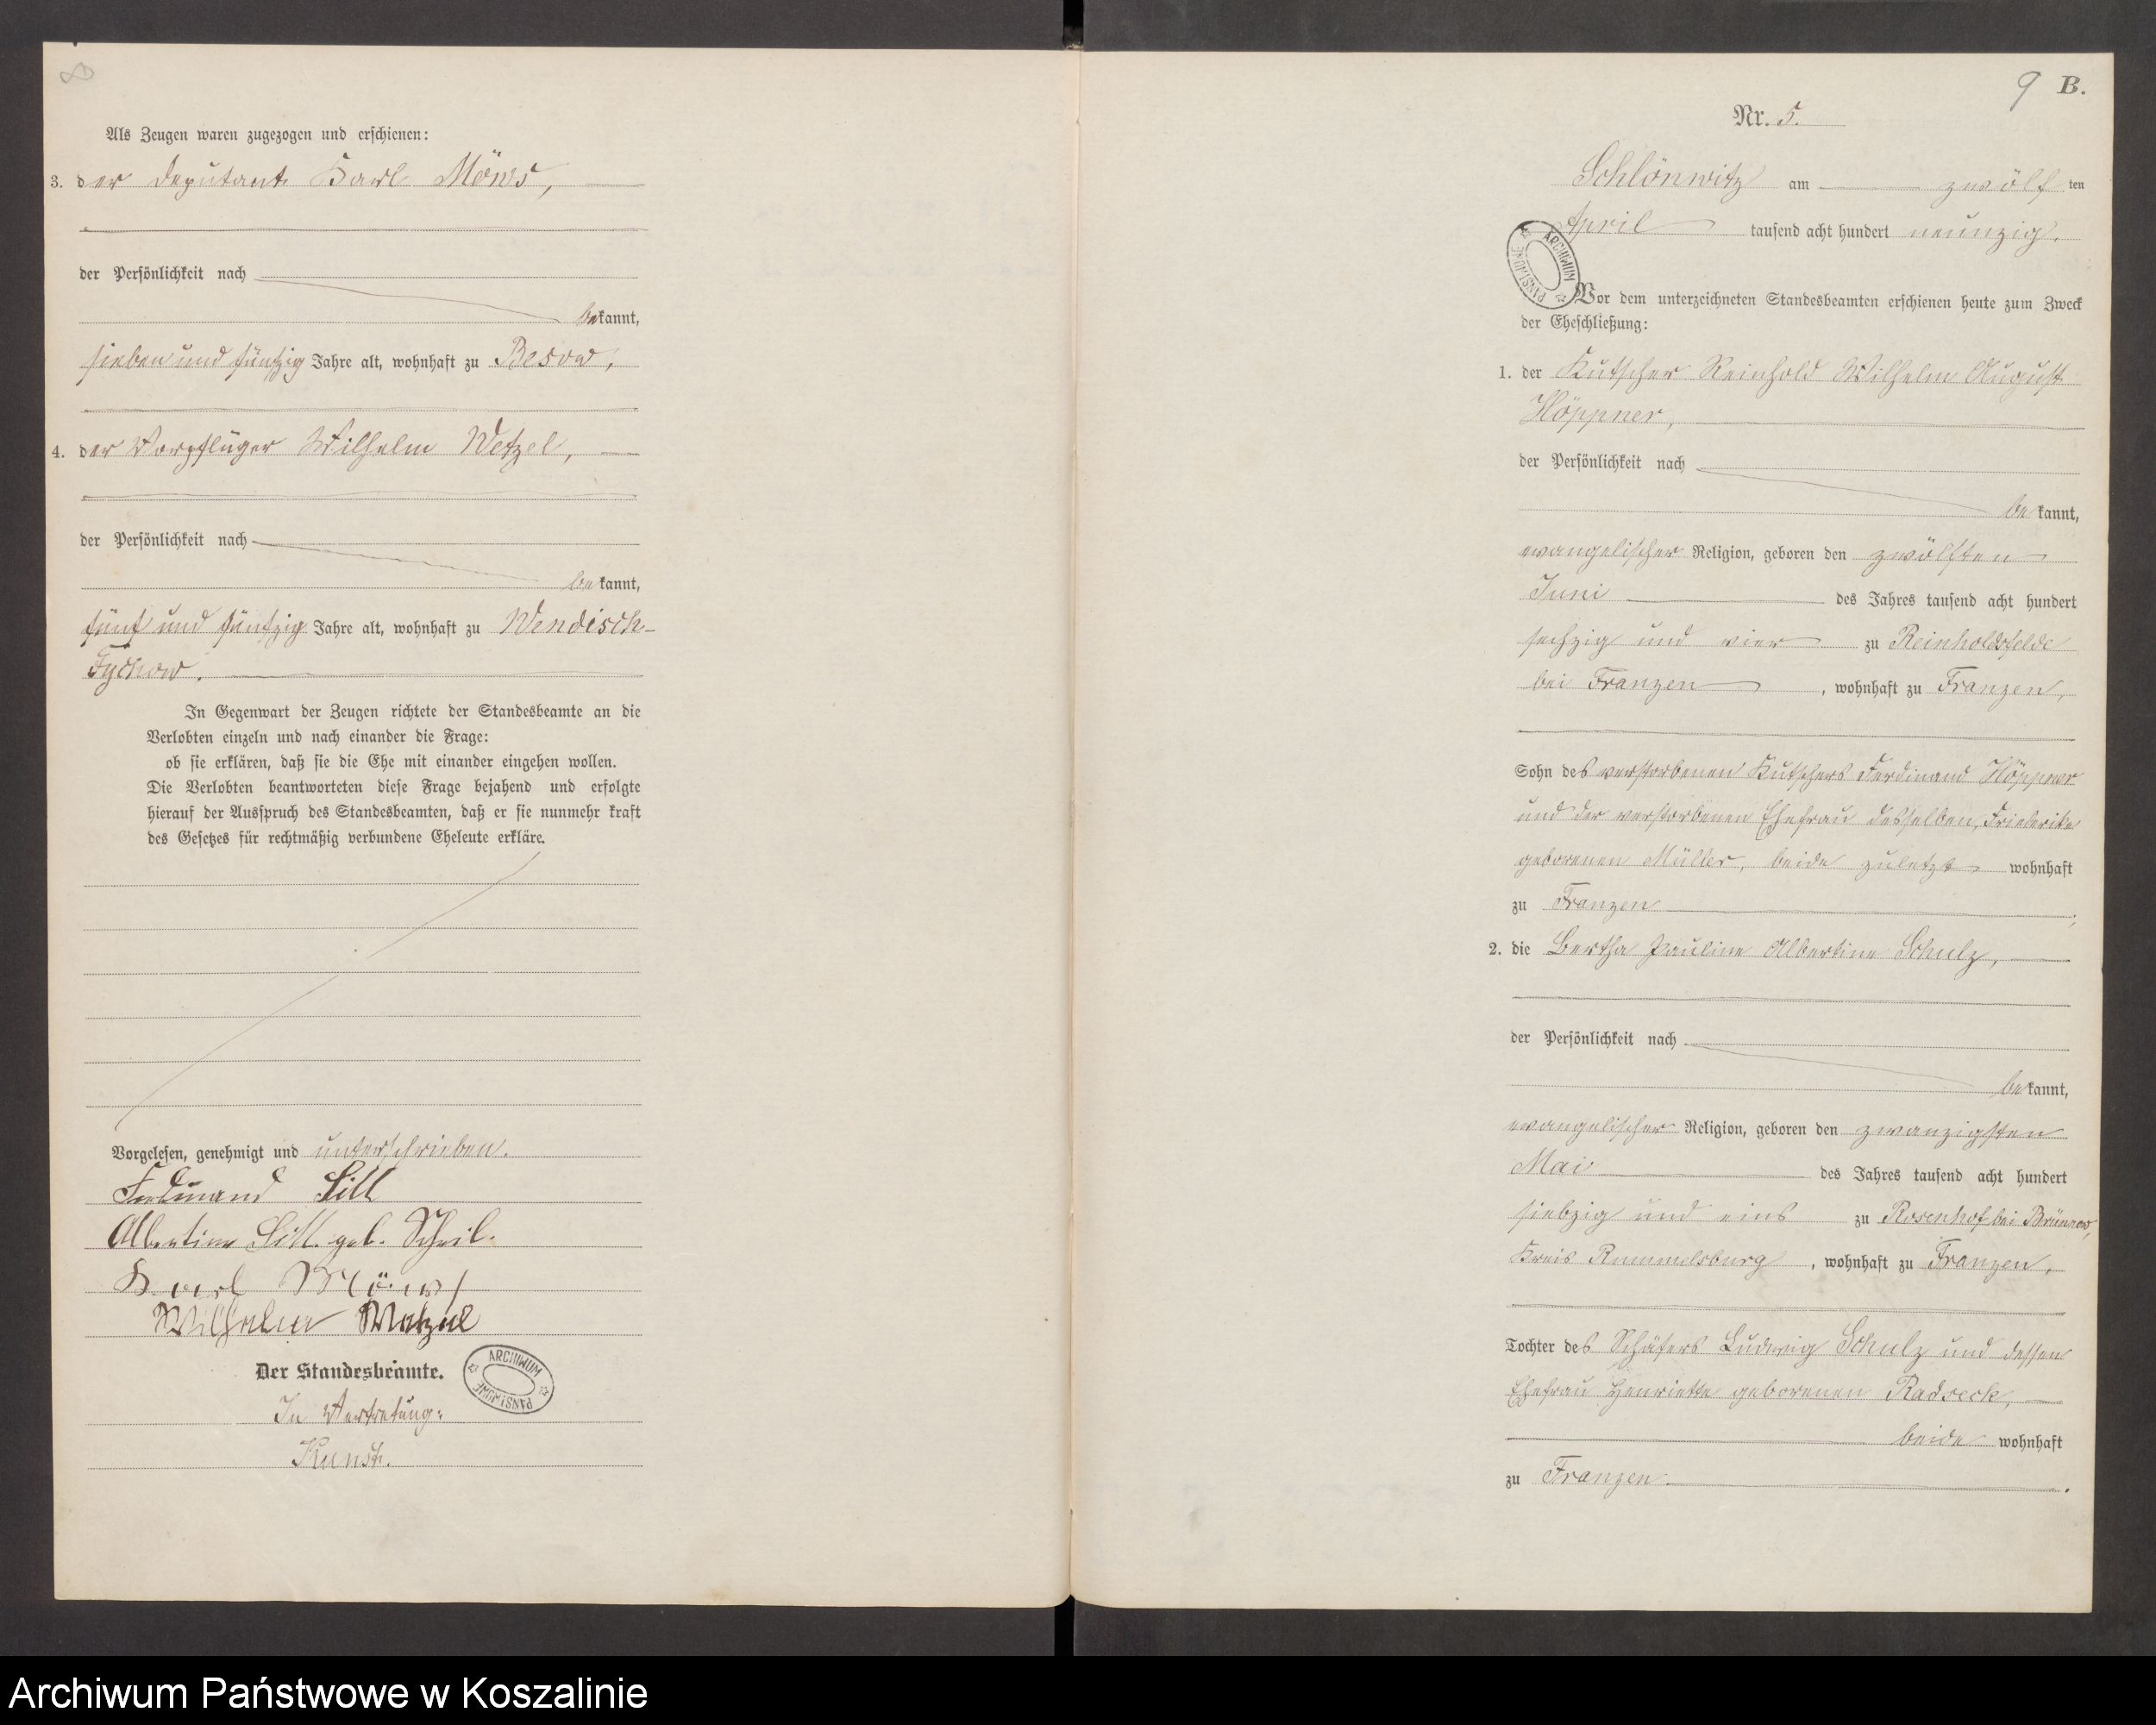 Als Zeugen waren zugezogen und erschienen:
3. der Deputant Karl Möws,
der Persönlichkeit nach
bekannt,
sieben und fünfzig Jahre alt, wohnhaft zu Besow,
4. der Vorpflüger Wilhelm Wetzel,
der Persönlichkeit nach
bekannt,
fünf und fünfzig Jahre alt, wohnhaft zu Wendisch-
Tychow.
In Gegenwart der Zeugen richtete der Standesbeamte an die
Verlobten einzeln und nach einander die Frage:
ob sie erklären, daß sie die Ehe mit einander eingehen wollen.
Die Verlobten beantworteten diese Frage bejahend und erfolgte
hierauf der Ausspruch des Standesbeamten, daß er sie nunmehr kraft
des Gesetzes für rechtmäßig verbundene Eheleute erkläre.
Vorgelesen, genehmigt und unterschrieben.
Ferdinand Sill
Albertine Sill geb. Scheil.
Karl Möws
Wilhelm Wetzel
Der Standesbeamte.
ARCHIWUM PAŃSTWOWE
In Vertretung:
Kunst.
9 B.
Nr. 5.
Schlönwitz am zwölf ten
April tausend acht hundert neunzig.
ARCHIWUM PAŃSTWOWE
Vor dem unterzeichneten Standesbeamten erschienen heute zum Zweck
der Eheschließung:
1. der Kutscher Reinhold Wilhelm August
Höppner,
der Persönlichkeit nach
bekannt,
evangelischer Religion, geboren den zwölften
Juni des Jahres tausend acht hundert
sechzig und vier zu Reinholdsfelde
bei Franzen, wohnhaft zu Franzen,
Sohn des verstorbenen Kutschers Ferdinand Höppner
und der verstorbenen Ehefrau desselben, Friederike
geborenen Müller, beide zuletzt wohnhaft
zu Franzen;
2. die Bertha Pauline Albertine Schulz,
der Persönlichkeit nach
bekannt,
evangelischer Religion, geboren den zwanzigsten
Mai des Jahres tausend acht hundert
siebzig und eins zu Rosenhof bei Brünnow,
Kreis Rummelsburg, wohnhaft zu Franzen,
Tochter des Schäfers Ludwig Schulz und dessen
Ehefrau Henriette geborenen Radseck,
beide wohnhaft
zu Franzen.
Archiwum Państwowe w Koszalinie